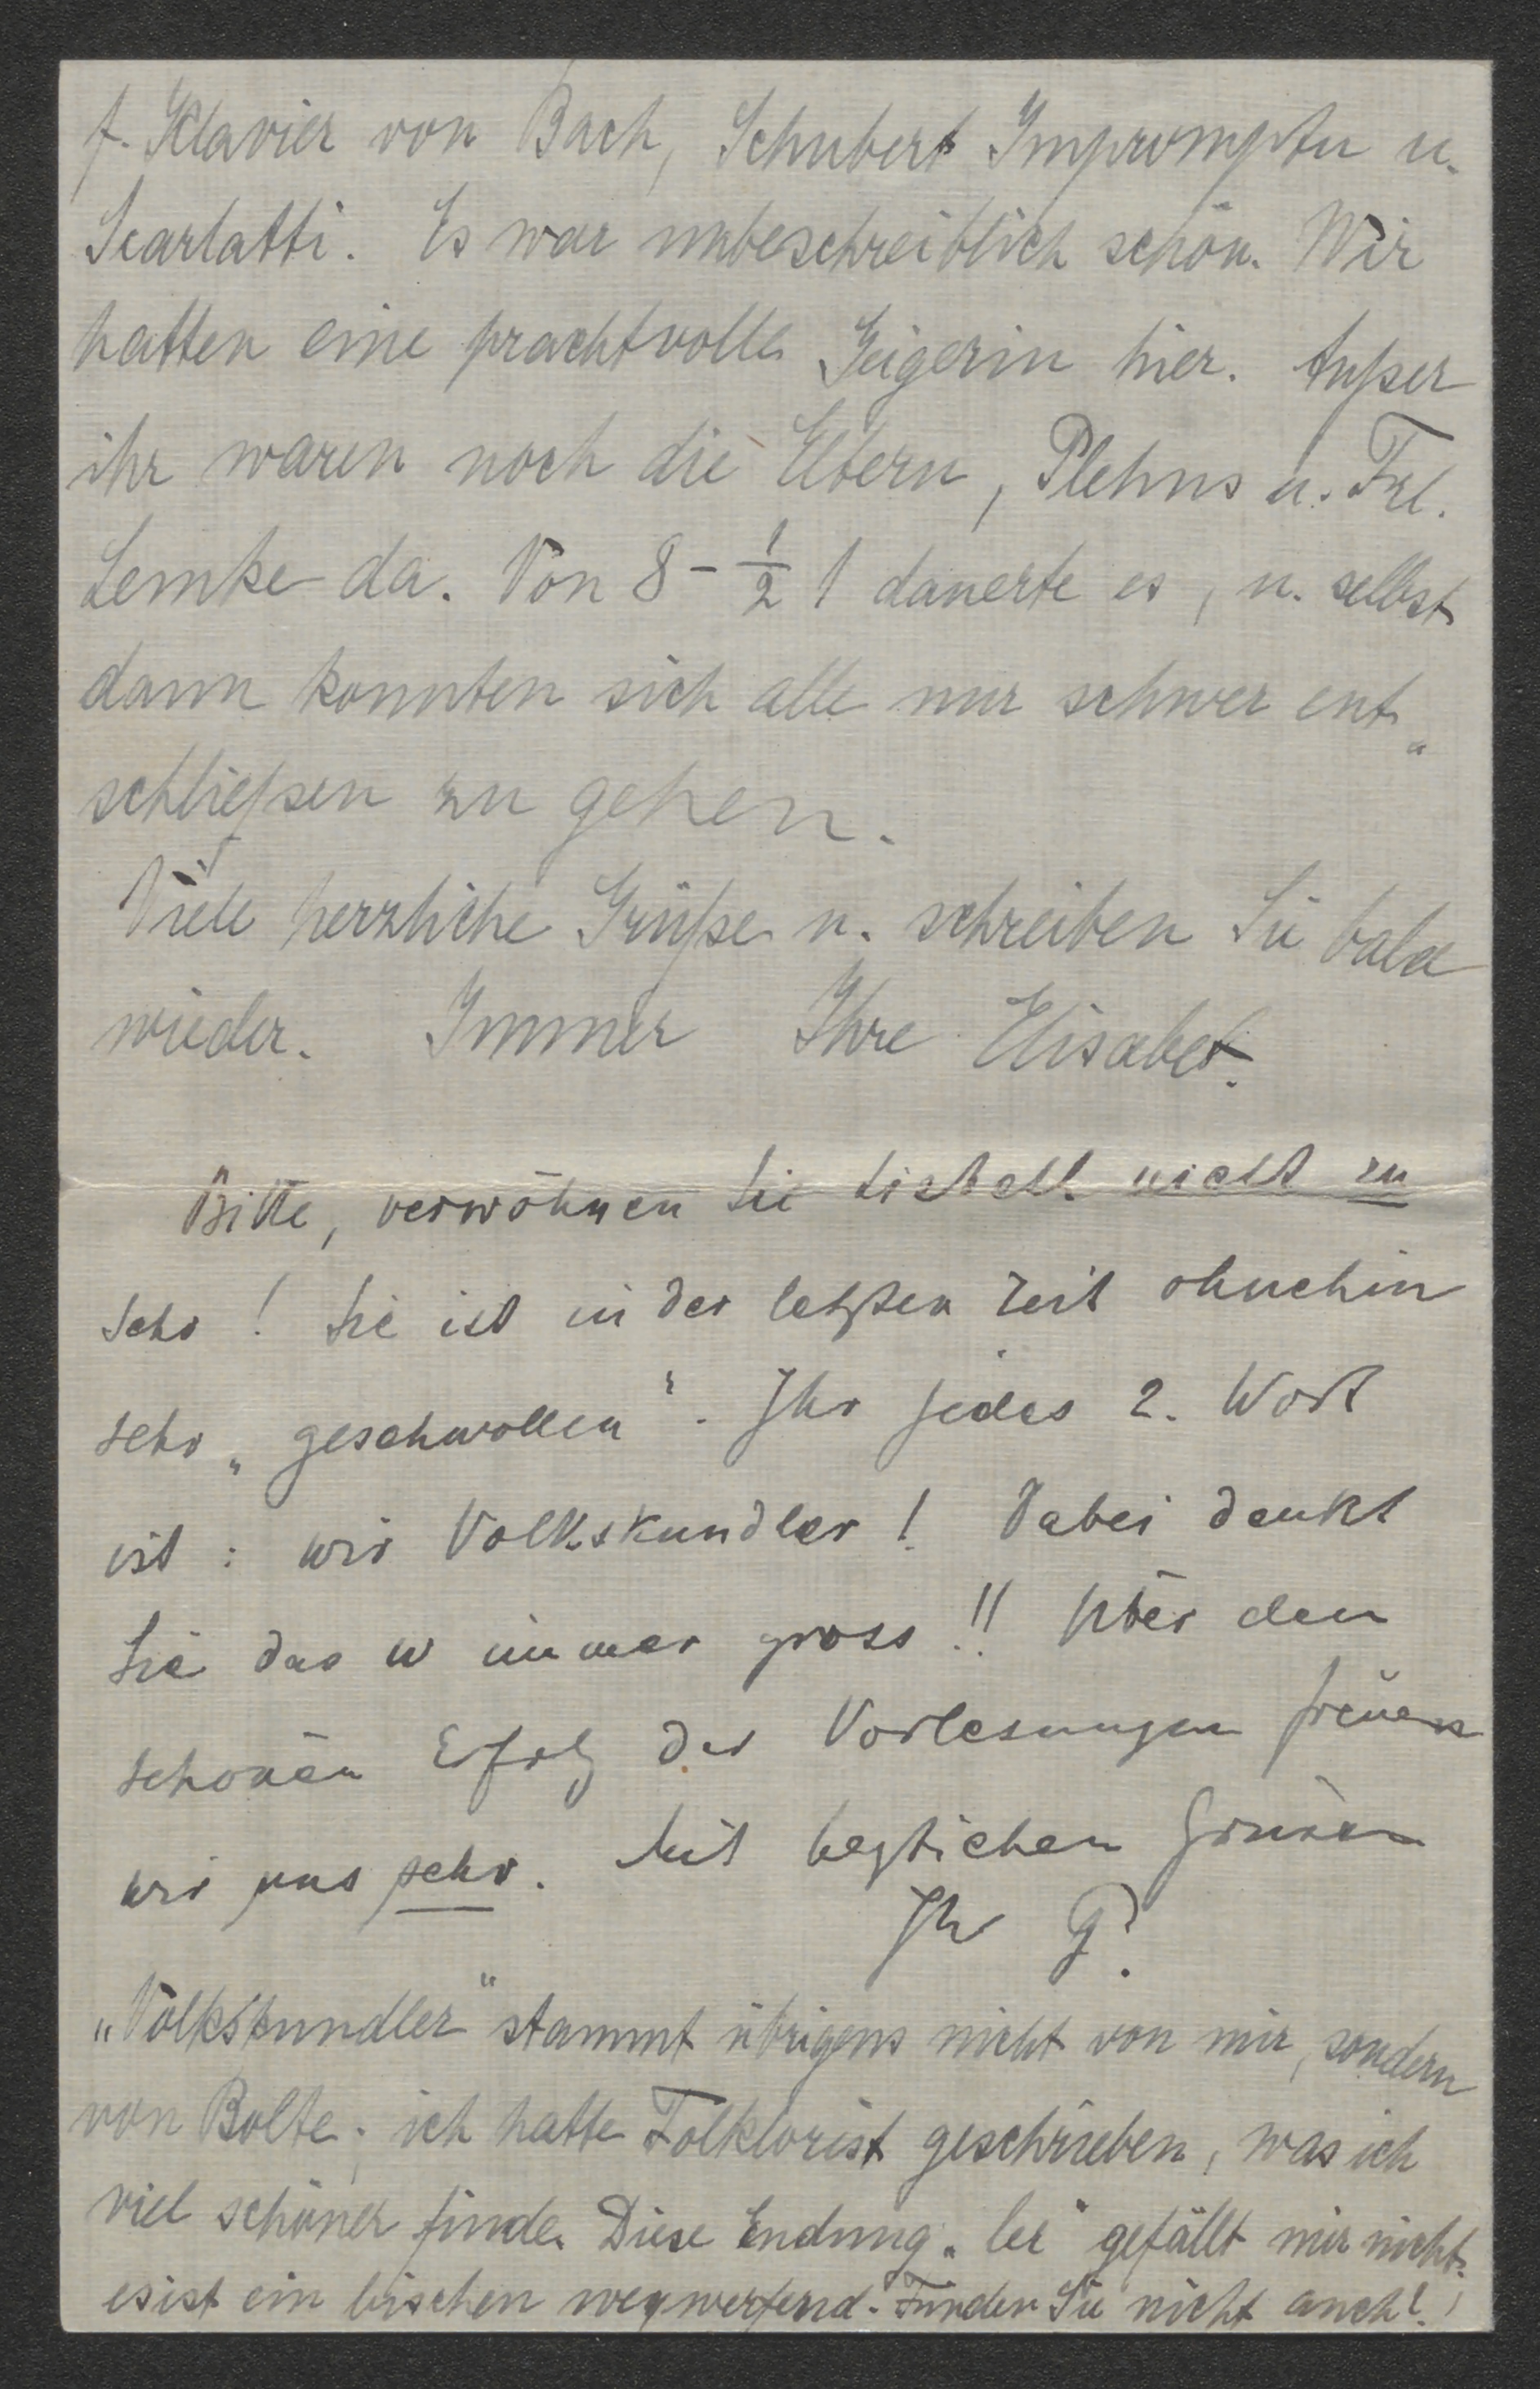 f. Klavier von Bach, Schubert Impromptu u.
Scarlatti. Es war unbeschreiblich schön. Wir
hatten eine prachtvolle Geigerin hier. Außer
ihr waren noch die Eltern, Plehns u. Frl.
Lemke da. Von 8 - 1/2 1 dauerte es, u. selbst
dann konnten sich alle nur schwer ent„
schließen zu gehen.
Viele herzliche Grüße u. schreiben Sie bald
wieder. Immer Ihre Elisabet.
Bitte, verwöhnen Sie nicht zu
sehr! Sie ist in der letzten Zeit ohnehin
sehr „geschwollen“. Ihr jedes 2. Wort
ist: wir Volkskundler! Dabei denkt
Sie das W immer gross!! Über den
schönen Erfolg der Vorlesungen freuen
wir uns sehr. Mit herzlichen Grüssen
Ihr G.
„Volkskundler“ stammt übrigens nicht von mir, sondern
von Bolte; ich hatte Folklorist geschrieben, was ich
viel schöner finde. Diese Endung „ler“ gefällt mir nicht.
es ist ein bischen wegwerfend. Finden Sie nicht auch?